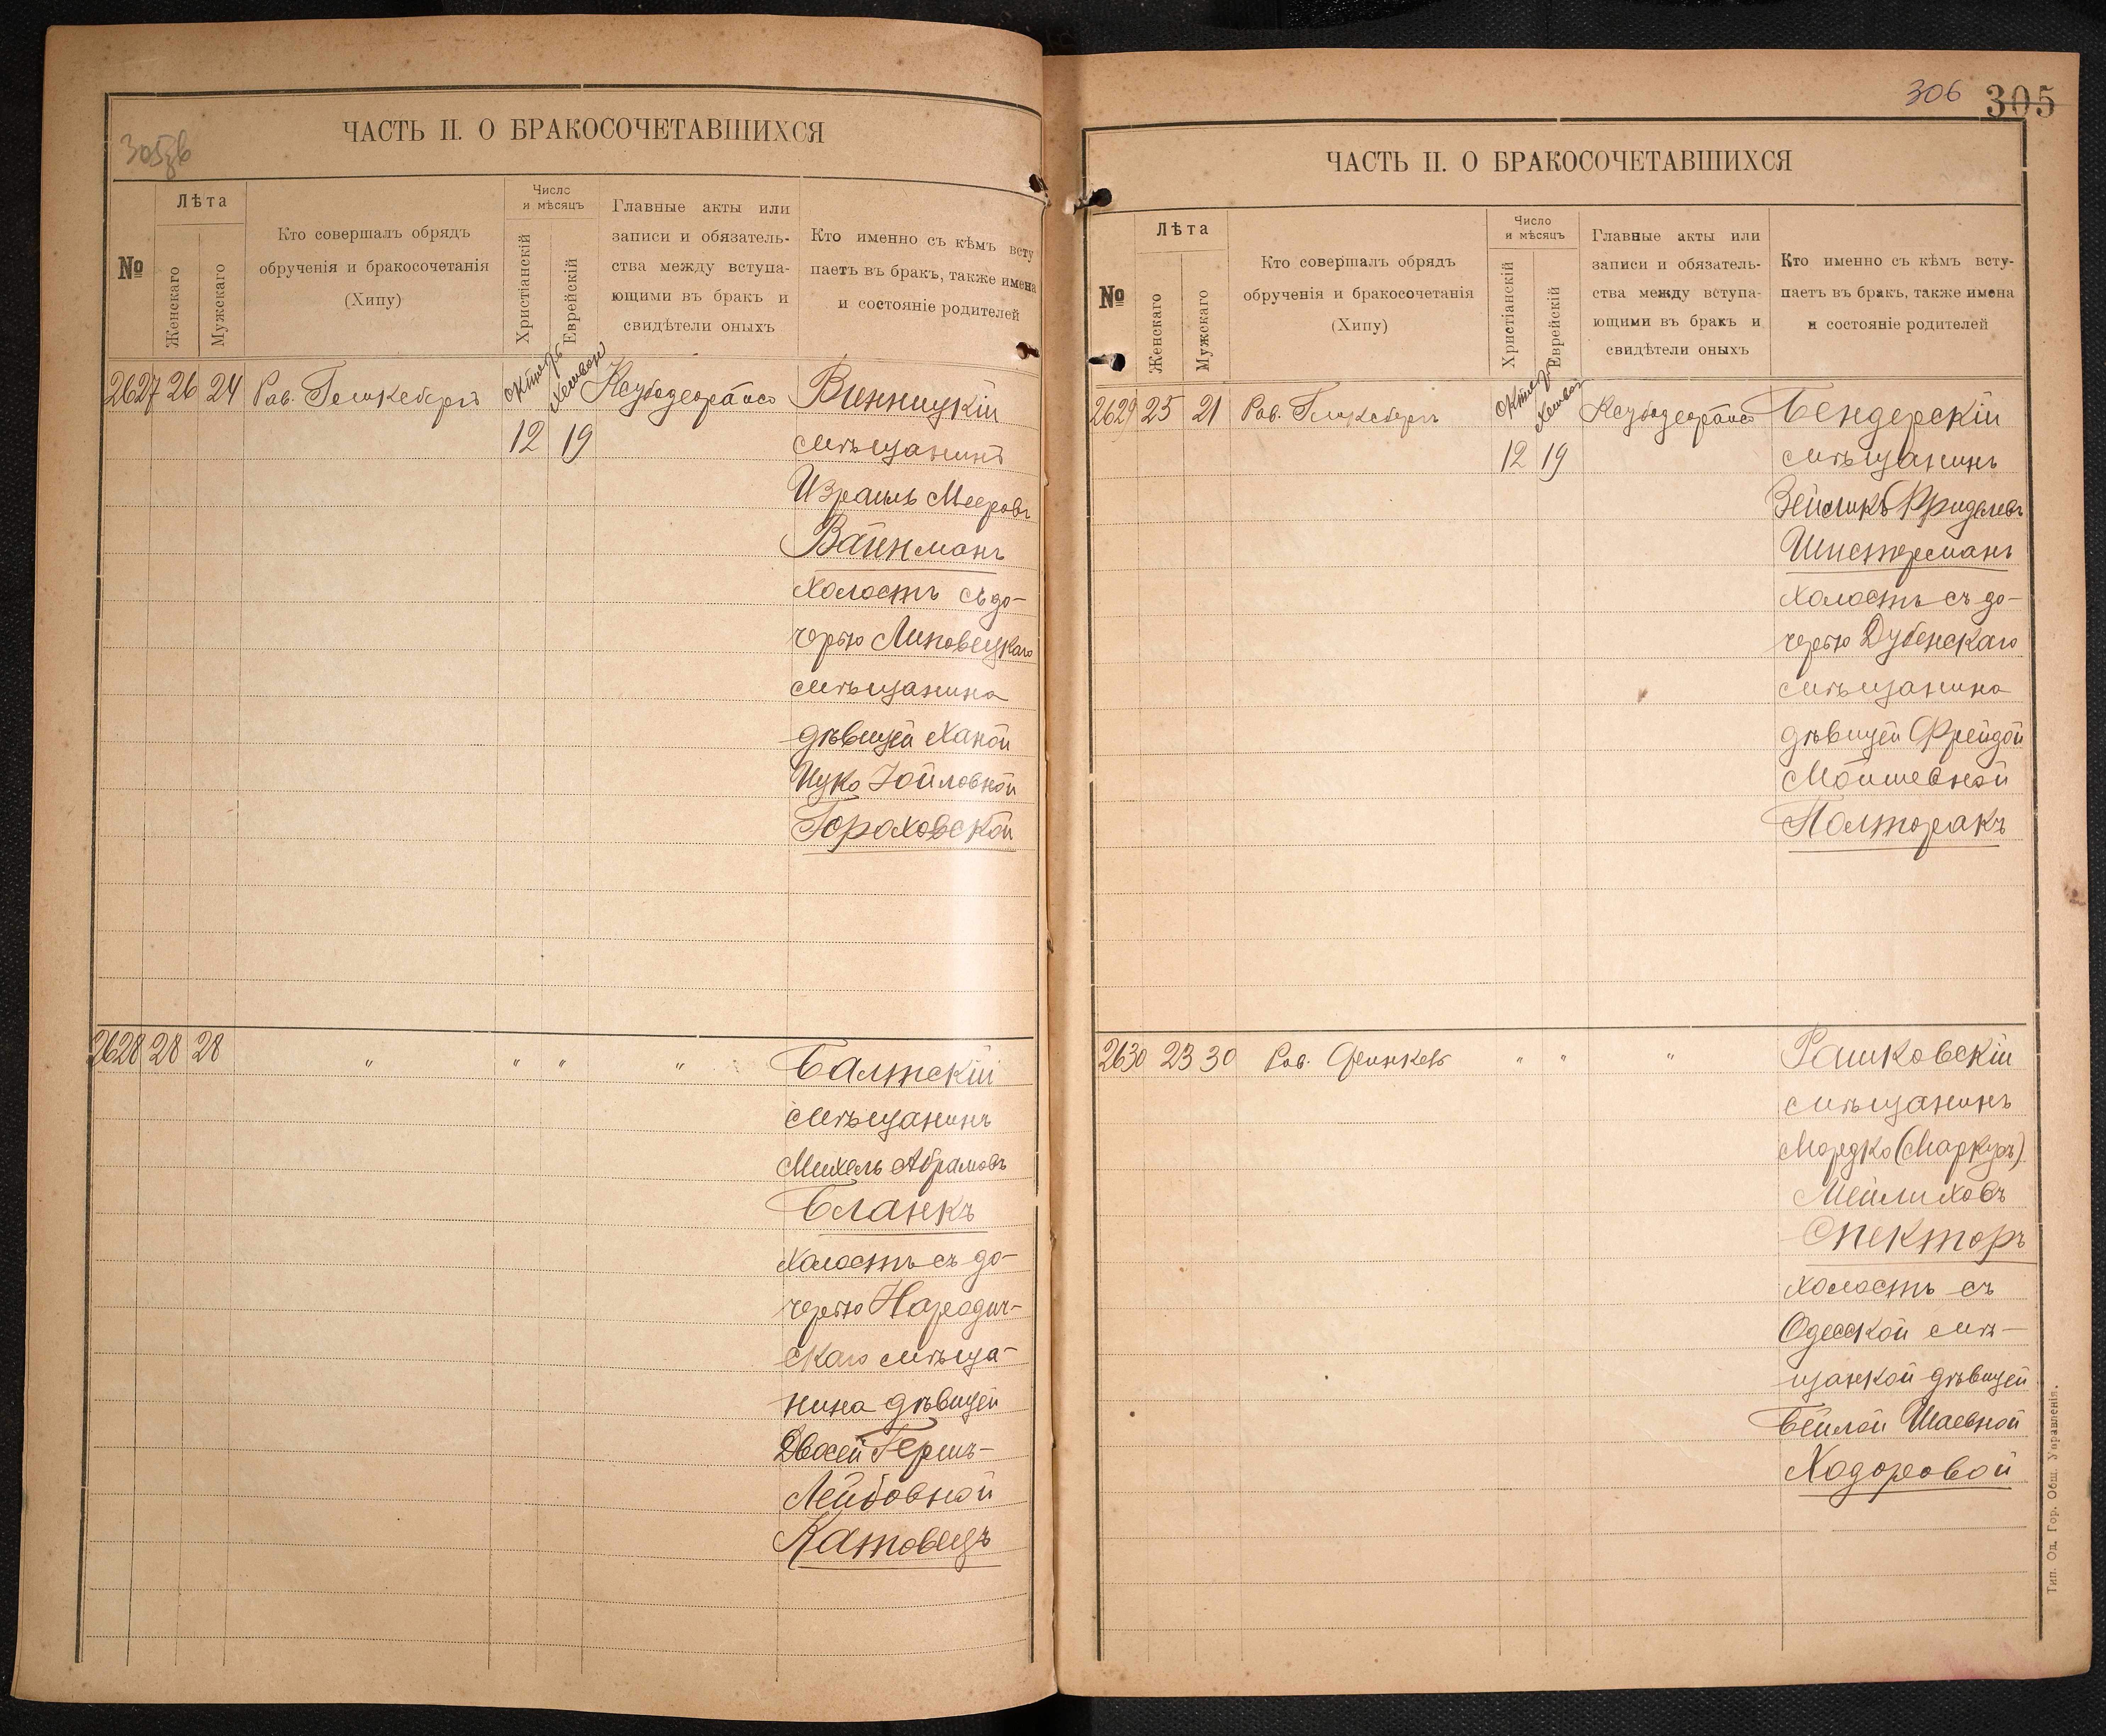 305зв
ЧАСТЬ II. О БРАКОСОЧЕТАВШИХСЯ
№
Лѣта
Женскаго
Мужскаго
Кто совершалъ обрядъ
обрученія и бракосочетанія
(Хипу)
Число
и мѣсяцъ
Христіанскій
Еврейскій
Главные акты или
записи и обязатель-
ства между вступа-
ющими въ бракъ и
свидѣтели оныхъ
Кто именно съ кѣмъ всту
паетъ въ бракъ, также имена
и состояніе родителей
2627 26 24 Рав.
12 19
Винницкій
мѣщанинъ
Израиль Мееровъ
Вайнманъ
холостъ съ до-
черью Липовецкаго
мѣщанина
дѣвицей Ханой
Цуко Іойловной
Гороховской
2628 28 28 " " " "
Балтскій
мѣщанинъ
Михель Абрамовъ
Бланкъ
холостъ съ до-
черью Народич-
скаго мѣща-
нина дѣвицей
Двосей Гершъ-
Лейбовной
Катовецъ
306 305
ЧАСТЬ II. О БРАКОСОЧЕТАВШИХСЯ
№
Лѣта
Женскаго
Мужскаго
Кто совершалъ обрядъ
обрученія и бракосочетанія
(Хипу)
Число
и мѣсяцъ
Христіанскій
Еврейскій
Главные акты или
записи и обязатель-
ства между вступа-
ющими въ бракъ и
свидѣтели оныхъ
Кто именно съ кѣмъ всту-
паетъ въ бракъ, также имена
и состояніе родителей
2629 25 21 Рав.
12 19
Бендерскій
мѣщанинъ
Зейликъ Фриделевъ
Шистерманъ
холостъ съ до-
черью Дубенскаго
мѣщанина
дѣвицей Фрейдой
Мойшевной
Полторакъ
2630 23 30 Рав. " " "
Рашковскій
мѣщанинъ
Мордко (Маркусъ)
Мейлиховъ
Спекторъ
холостъ съ
Одесской мѣ-
щанкой дѣвицей
Бейлой Шаевной
Ходоровой
Тип. Од. Гор. Общ. Управленія.